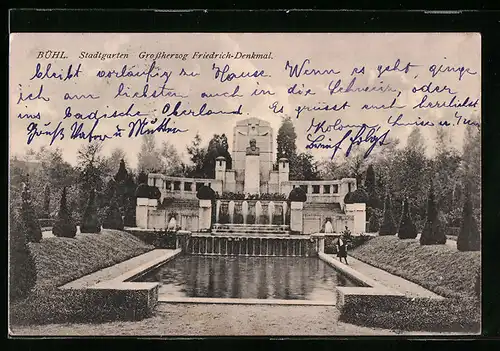 BÜHL. Stadtgarten Großherzog Friedrich-Denkmal.
bleibt vorläufig zu Hause. Wenn es geht, ginge
ich am liebsten auch in die Schweiz, oder
ins badische Oberland. Es grüsst euch herzlichst
Gruß Vater u. Mutter Luise u.
Brief folgt